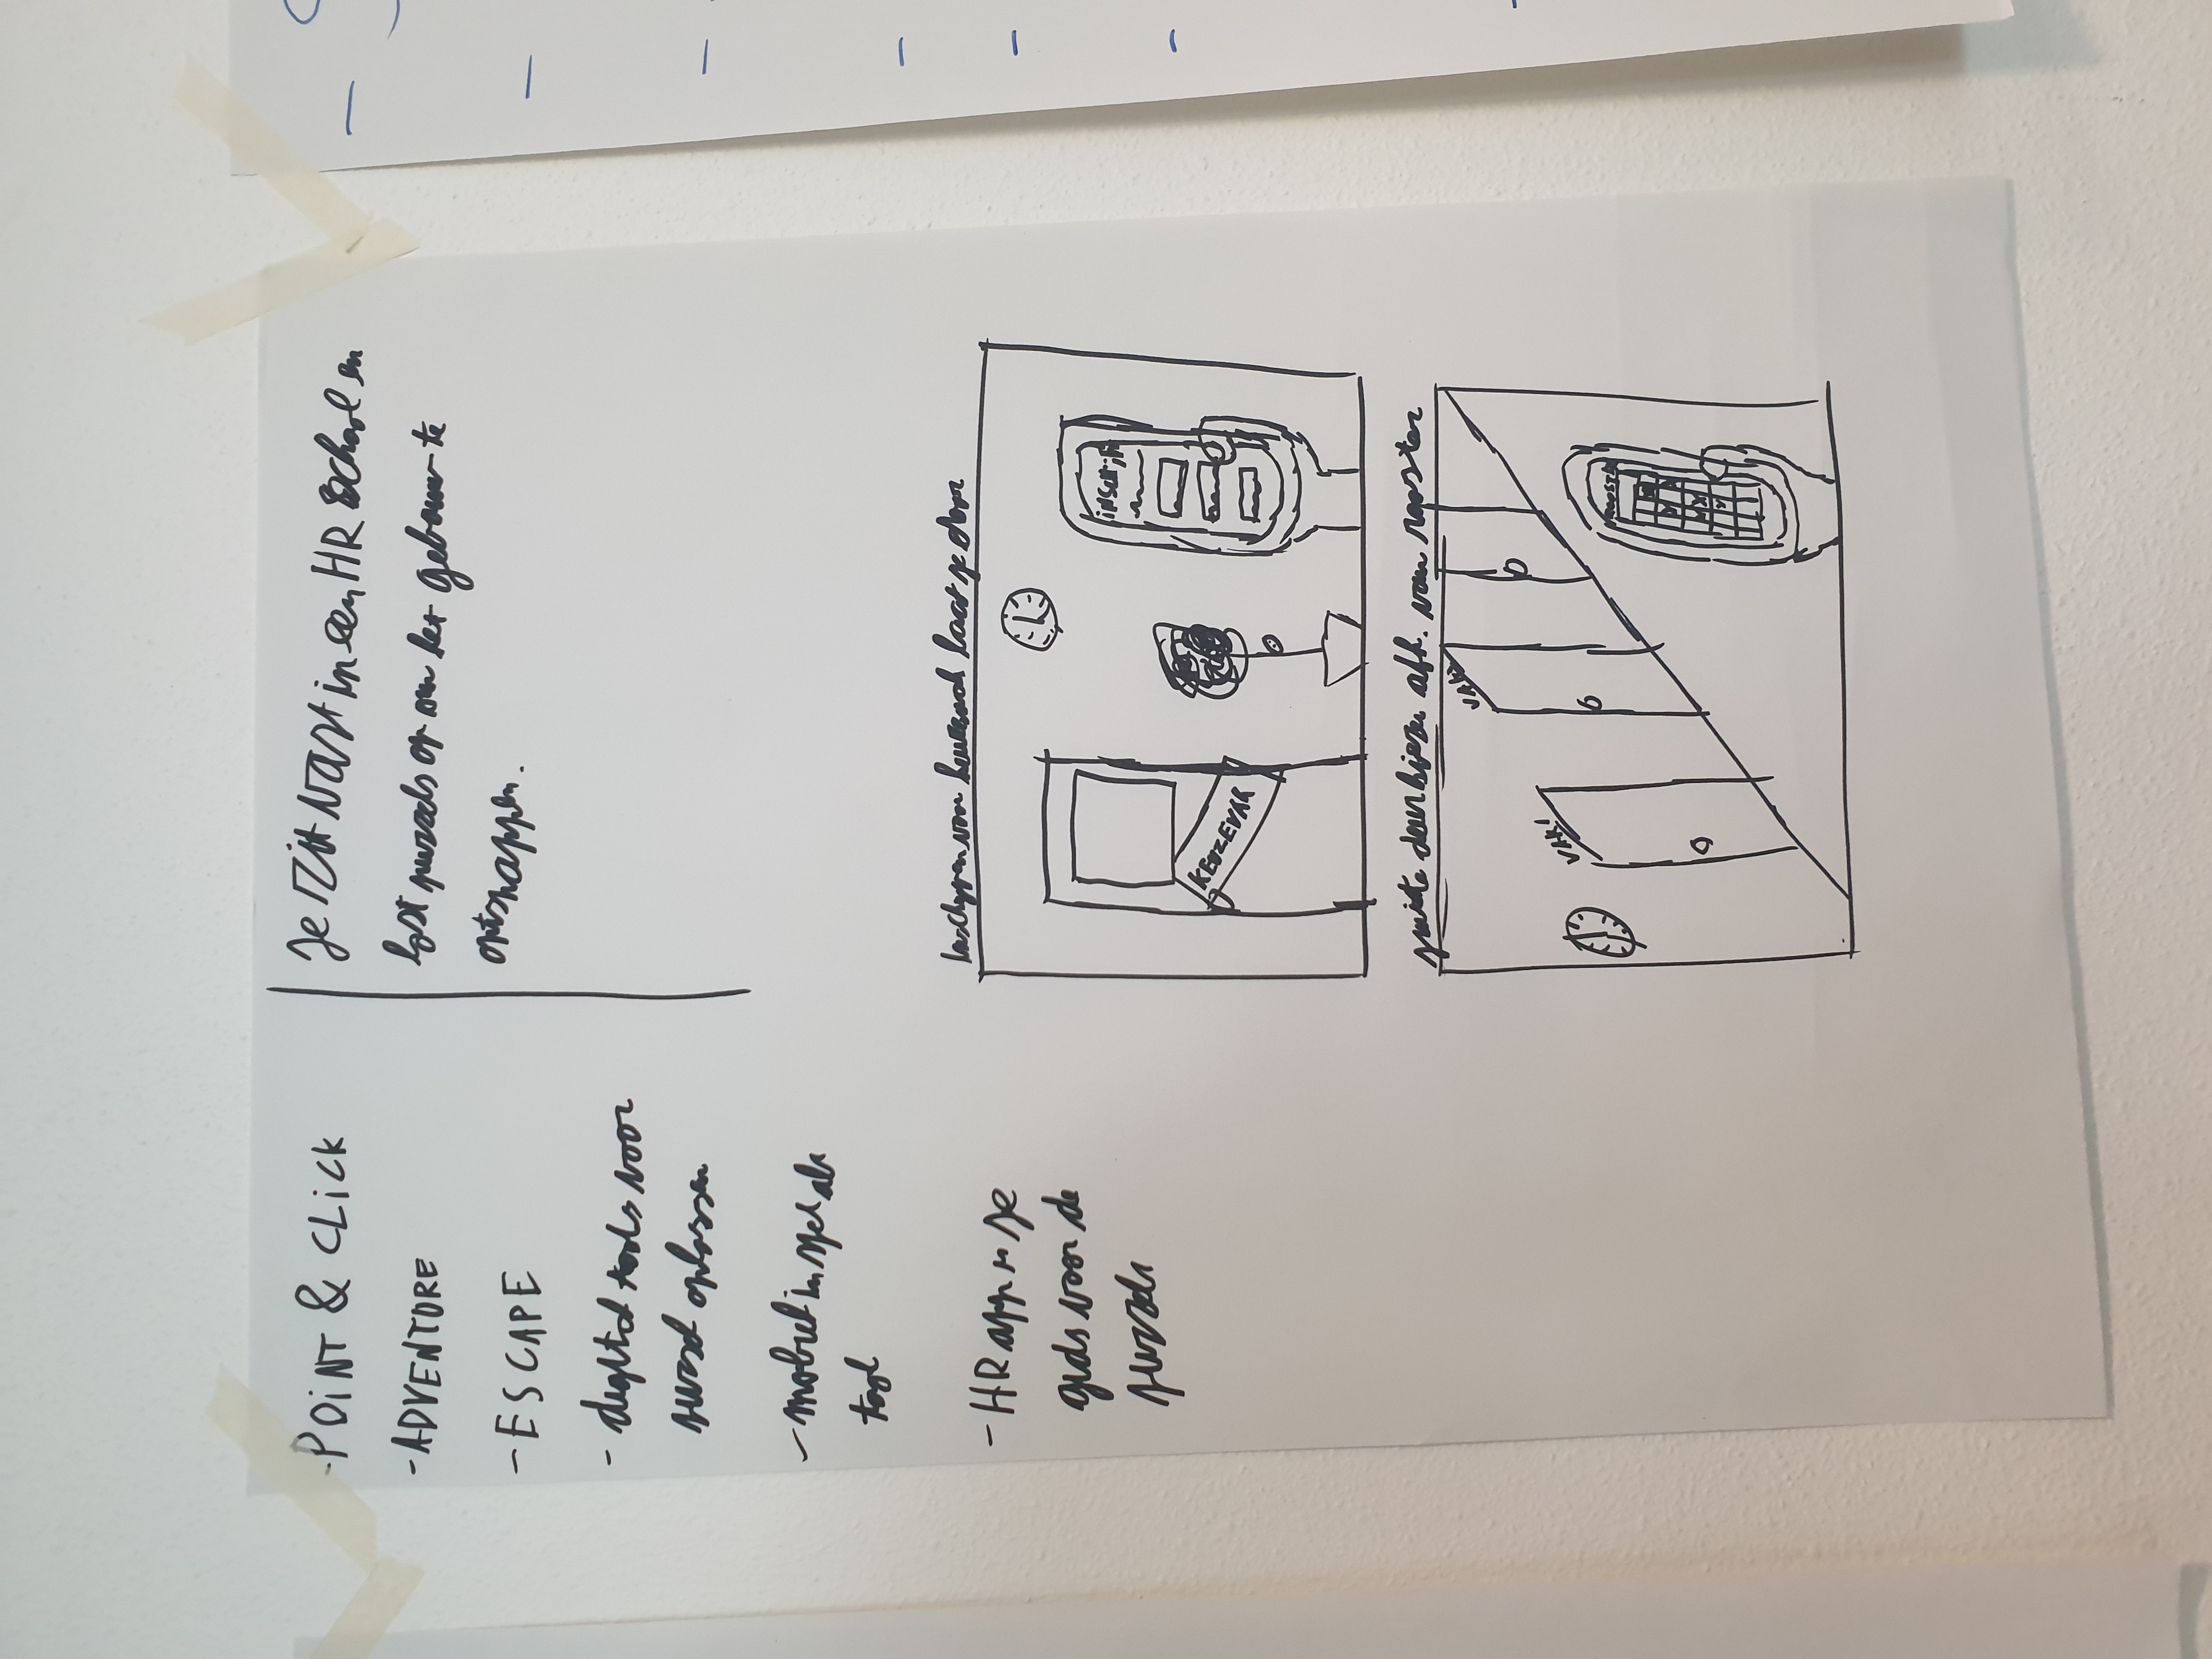 - POINT & CLICK
- ADVENTURE
- ESCAPE
- digital tools voor
puzzel oplossen
- mobiel in spel als
tool
- HR app is je
gids voor de
puzzels
Je zit vast in een HR school en
lost puzzels op om het gebouw te
ontsnappen.
Inschrijven voor keuzevak laat je door
KEUZEVAK
juiste deur kiezen afh. van rooster
VAK1
VAK2
ROOSTER